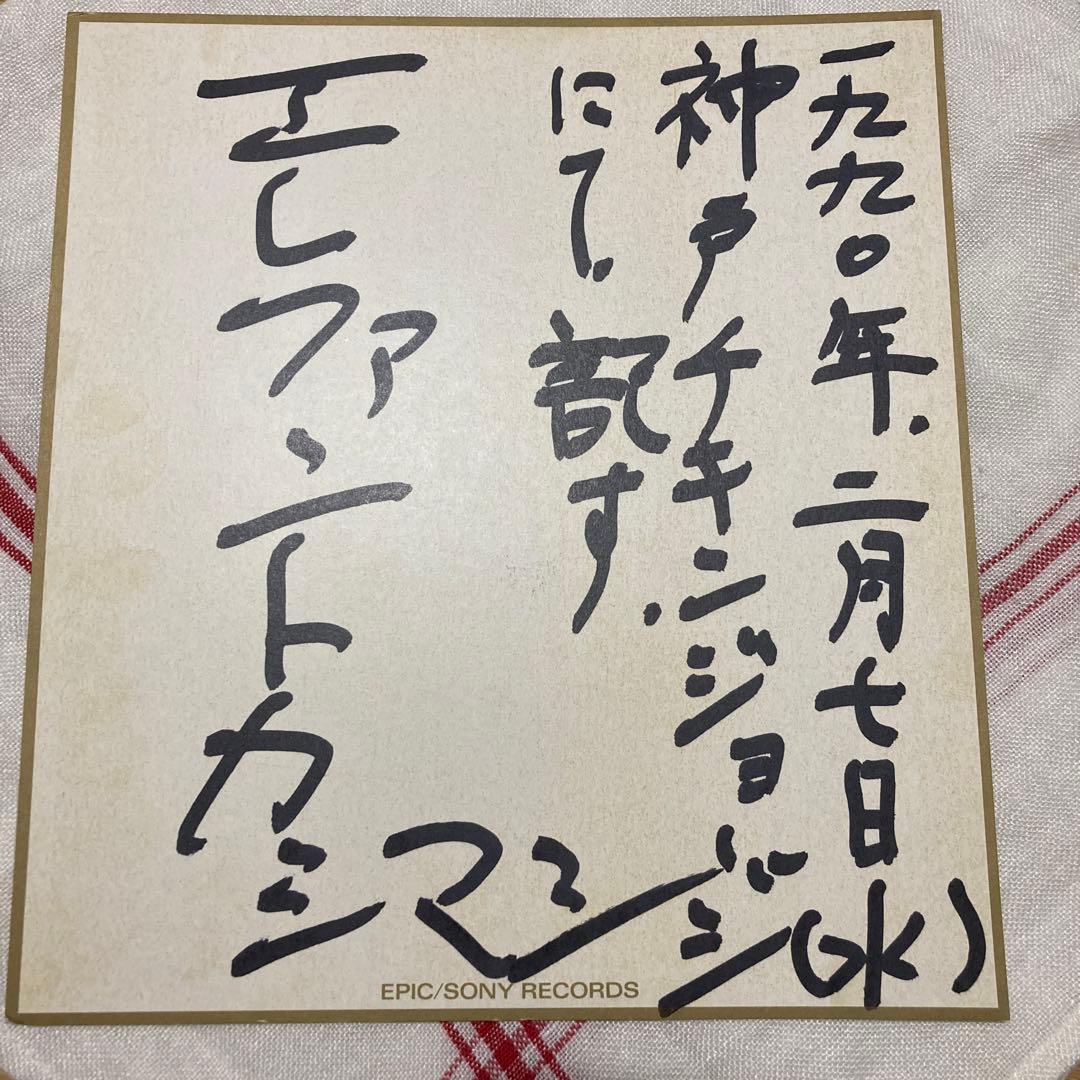 一九九〇年.二月七日(水)
神戸チキンジョージ
にて.記す.
エレファントカシマシ
EPIC/SONY RECORDS